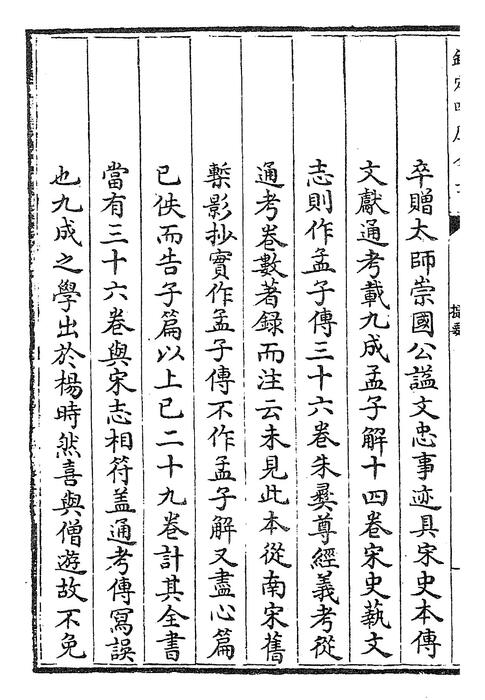 卒贈太師崇國公謚文忠事迹具宋史本傳
文獻通考載九成孟子解十四卷宋史藝文
志則作孟子傳三十六卷朱彝尊經義考從
通考卷數著録而注云未見此本從南宋舊
槧影抄實作孟子傳不作孟子解又盡心篇
已佚而告子篇以上已二十九卷計其全書
當有三十六卷與宋志相符盖通考傳寫誤
也九成之學出於楊時然喜與僧遊故不免